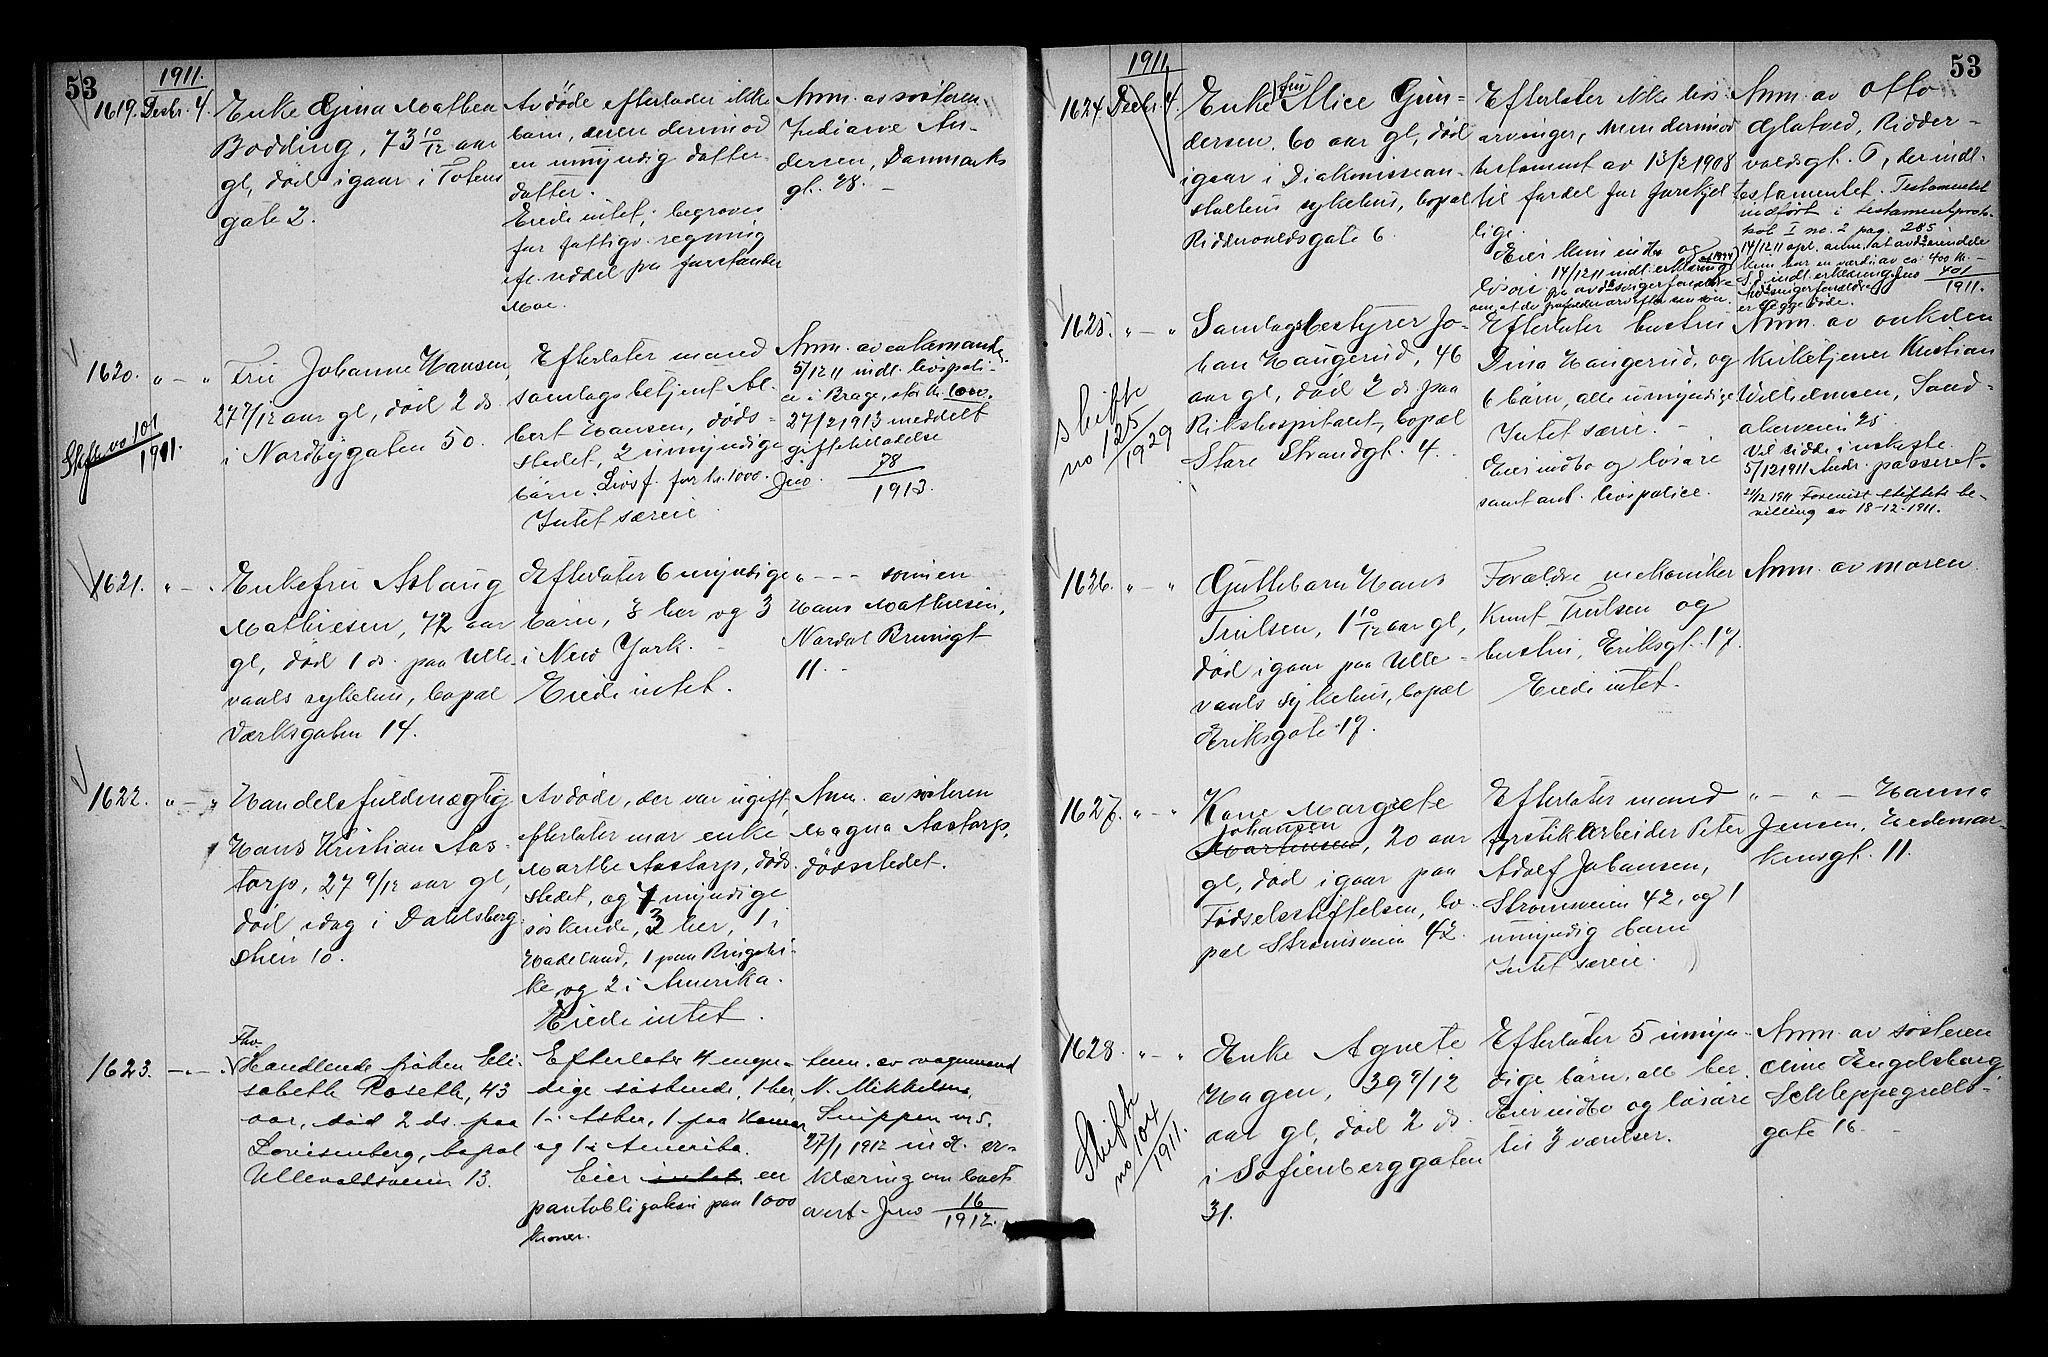 53
1911.
1619. Decbr. 4.
Enke Gina Mathea
Bodding, 73 10/12 aar
gl, død igaar i Totens
gate 2.
Avdøde efterlader ikke
børn, deren derimod
en umyndig datter-
datter.
Eiede intet; begraves
for fattigv. regning
efl. seddel fra forstander
Moe.
Anm. av søsteren
Indiane An-
dersen, Danmarks
gt. 28.
1620. " — "
Skifte no 101
1911.
Fru Johanne Hansen,
27 7/12 aar gl, død 2 ds
i Nordbygaten 50.
Efterlater mand
samlagsbetjent Al-
bert Hansen, døds-
stedet, 2 umyndige
børn. Livsf. for kr. 1000.
Intet særeie.
Anm. av enkemanden.
5/12 11 indl. livspoli-
ce i Brage, stor kr. 1000.
27/2 1913 meddelt
giftetilladelse
Jno. 78
1913.
1621. " — "
Enkefru Aslaug
Mathiesen, 72 aar
gl, død 1 ds. paa Ulle-
vaals sykehus, bopæl
Værksgaten 14.
Efterlater 6 myndige
børn, 3 her og 3
i New York.
Eiede intet.
" — — sønnen
Hans Mathiesen,
Nordal Brunsgt
11.
1622. " — "
Handelsfuldmægtig
Hans Kristian Aas-
torp, 27 9/12 aar gl,
død idag i Dahlsberg-
stien 10.
Avdøde, der var ugift,
efterlater mor enke
Marthe Aastorp, døds-
stedet, og 7 myndige
søskende, 3 her, 1 i
Hadeland, 1 paa Ringeri-
ke og 2 i Amerika.
Eiede intet.
Anm. av søsteren
Magna Aastorp,
dødsstedet.
1623. — " — .
Fhv.
Handlende frøken Eli-
sabeth Roseth, 43
aar, død 2 ds. paa
Lovisenberg, bopæl
Ullevoldsveien 13.
Efterlater 4 myn-
dige søskende, 1 her,
1 i Asker, 1 paa Hamar
og 1 i Amerika.
Eier intet en
pantobligation paa 1000
kroner.
Anm. av vognmand
N. Mikkelsen,
Snippen no 5.
27/1 1912 indl. er-
klæring om boets
overt. Jno 16
1912.
53
1911.
1624. Decbr. 4.
Enke fru Alice Gun-
dersen, 60 aar gl, død
igaar i Diakonissean-
staltens sykehus, bopæl
Riddervoldsgate 6.
Efterlater ikke livs-
arvinger, men derimod
testament av 13/2 1908
til fordel for forskjel-
lige.
Eier kun indbo og
løsøre
14/12 11 indl. erklæring
fra avdødes svigerforældre
om at de frafalder arv efter sin søn.
Anm. av Otto
Glatved, Ridder-
voldsgt. 6, der indl.
testamentet. Testamentet
indført i testamentproto-
kol I no. 2 pag. 285
14/12 11 opl. anm. at avdødes eiendele
kun har en værdi av ca. 400 kr. —
S.d. indl. erklæring. Jno 401
1911.
Avdødes svigerforældre
er begge døde.
1625. " — "
Skifte
no 125
1929
Samlagsbestyrer Jo-
han Haugerud, 46
aar gl, død 2 ds paa
Rikshospitalet, bopæl
Store Strandgt. 4.
Efterlater hustru
Dina Haugerud, og
6 børn, alle umyndige
Intet særeie.
Eier indbo og løsøre
samt ant. livspolice.
Anm. av onkelen
kirketjener Kristian
Wilhelmsen, Sand-
akerveien 25
Vil sidde i uskifte.
5/12 1911 Andr. passeret.
21/12 1911 Forevist stiftets be-
villing av 18-12-1911.
1626. " — "
Guttebarn Hans
Trulsen, 1 10/12 aar gl,
død igaar paa Ulle-
vaals sykehus, bopæl
Eriksgate 17.
Forældre mekaniker
Knut Trulsen og
hustru, Eriksgt. 17.
Eiede intet.
Anm. av moren
1627. " — "
Kone Margrete
Johansen
Martinsen, 20 aar
gl, død igaar paa
Fødselsstiftelsen, bo-
pæl Strømsveien 42.
Efterlater mand
fabrikarbeider Peter
Adolf Johansen,
Strømsveien 42, og 1
umyndig barn
Intet særeie.
" — " — Hanna
Jensen, Hedemar-
kensgt. 11.
1628. " — "
Skifte
no 104
1911.
Enke Agnete
Hagen, 39 9/12
aar gl, død 2 ds.
i Sofienberggaten
31.
Efterlater 5 umyn-
dige børn, alle her.
Eier indbo og løsøre
til 3 værelser.
Anm. av søsteren
Oline Engelsborg
Schleppegrells-
gate 16.